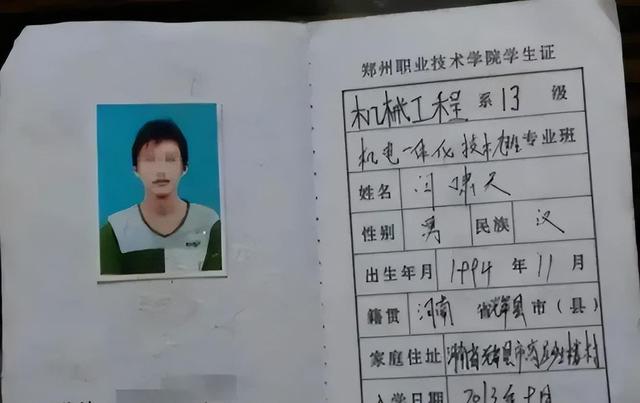 郑州职业技术学院学生证
机械工程 系 13 级
机电一体化技术 专业班
姓名 闫啸天
性别 男 民族 汉
出生年月 1994 年 11 月
籍贯 河南 省 县 市(县)
家庭住址 河南省 县 村
入学日期 2013年 月